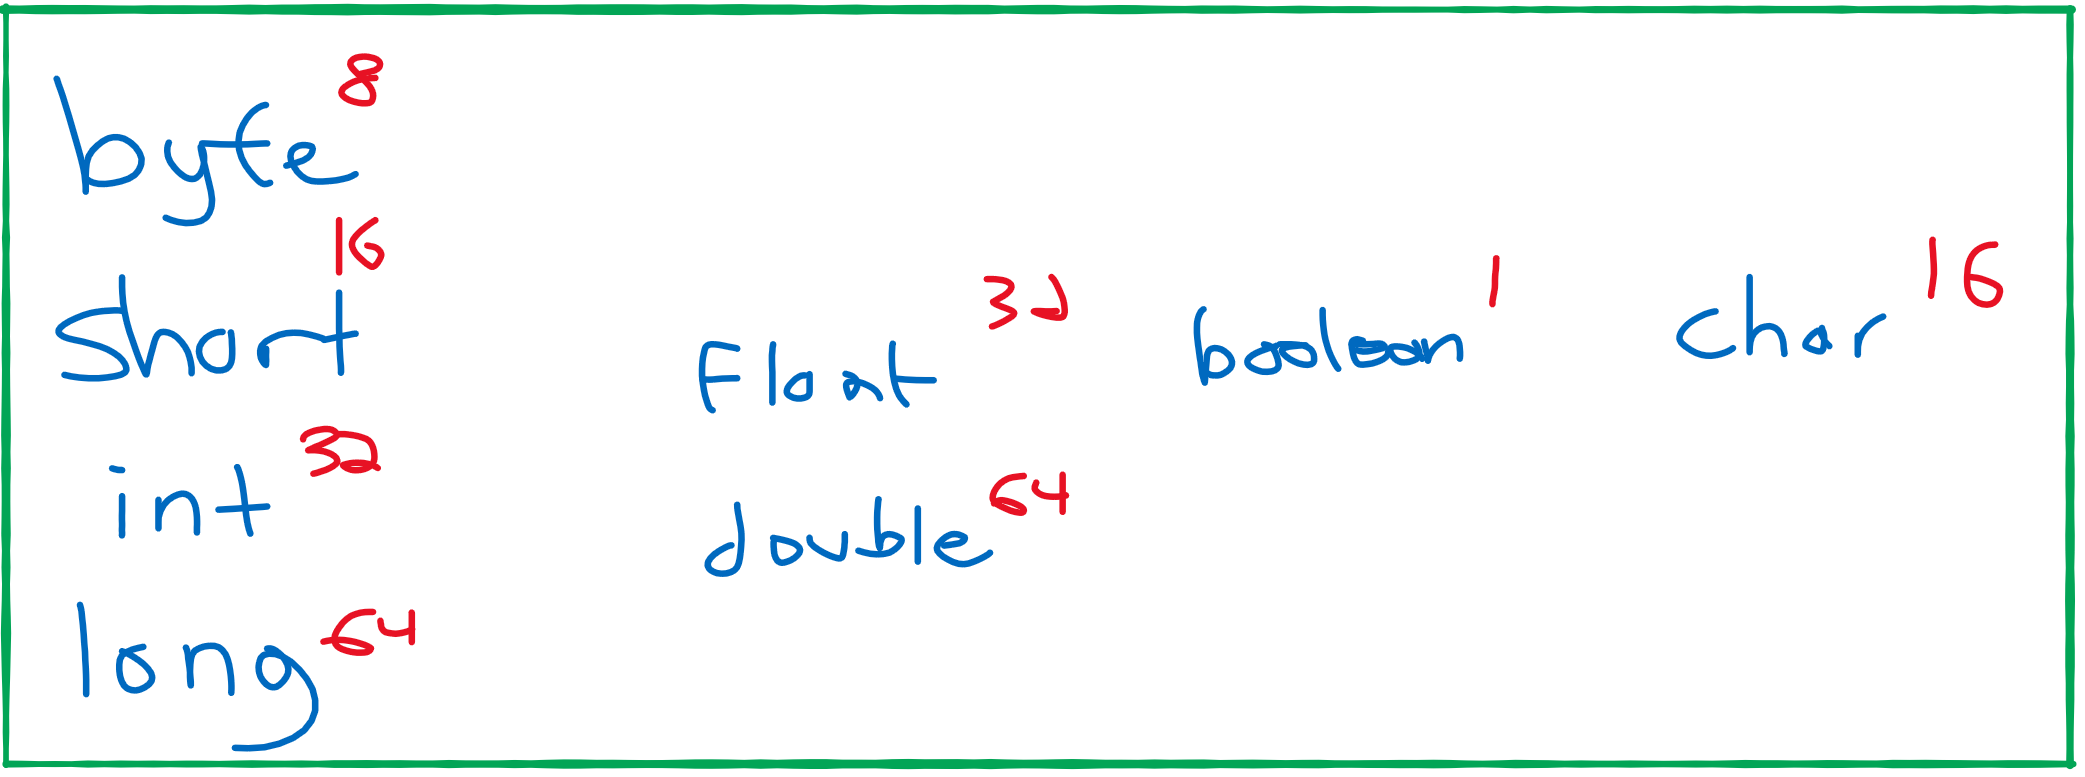 byte 8
short 16
int 32
long 64
Float 32
double 64
boolean 1
char 16